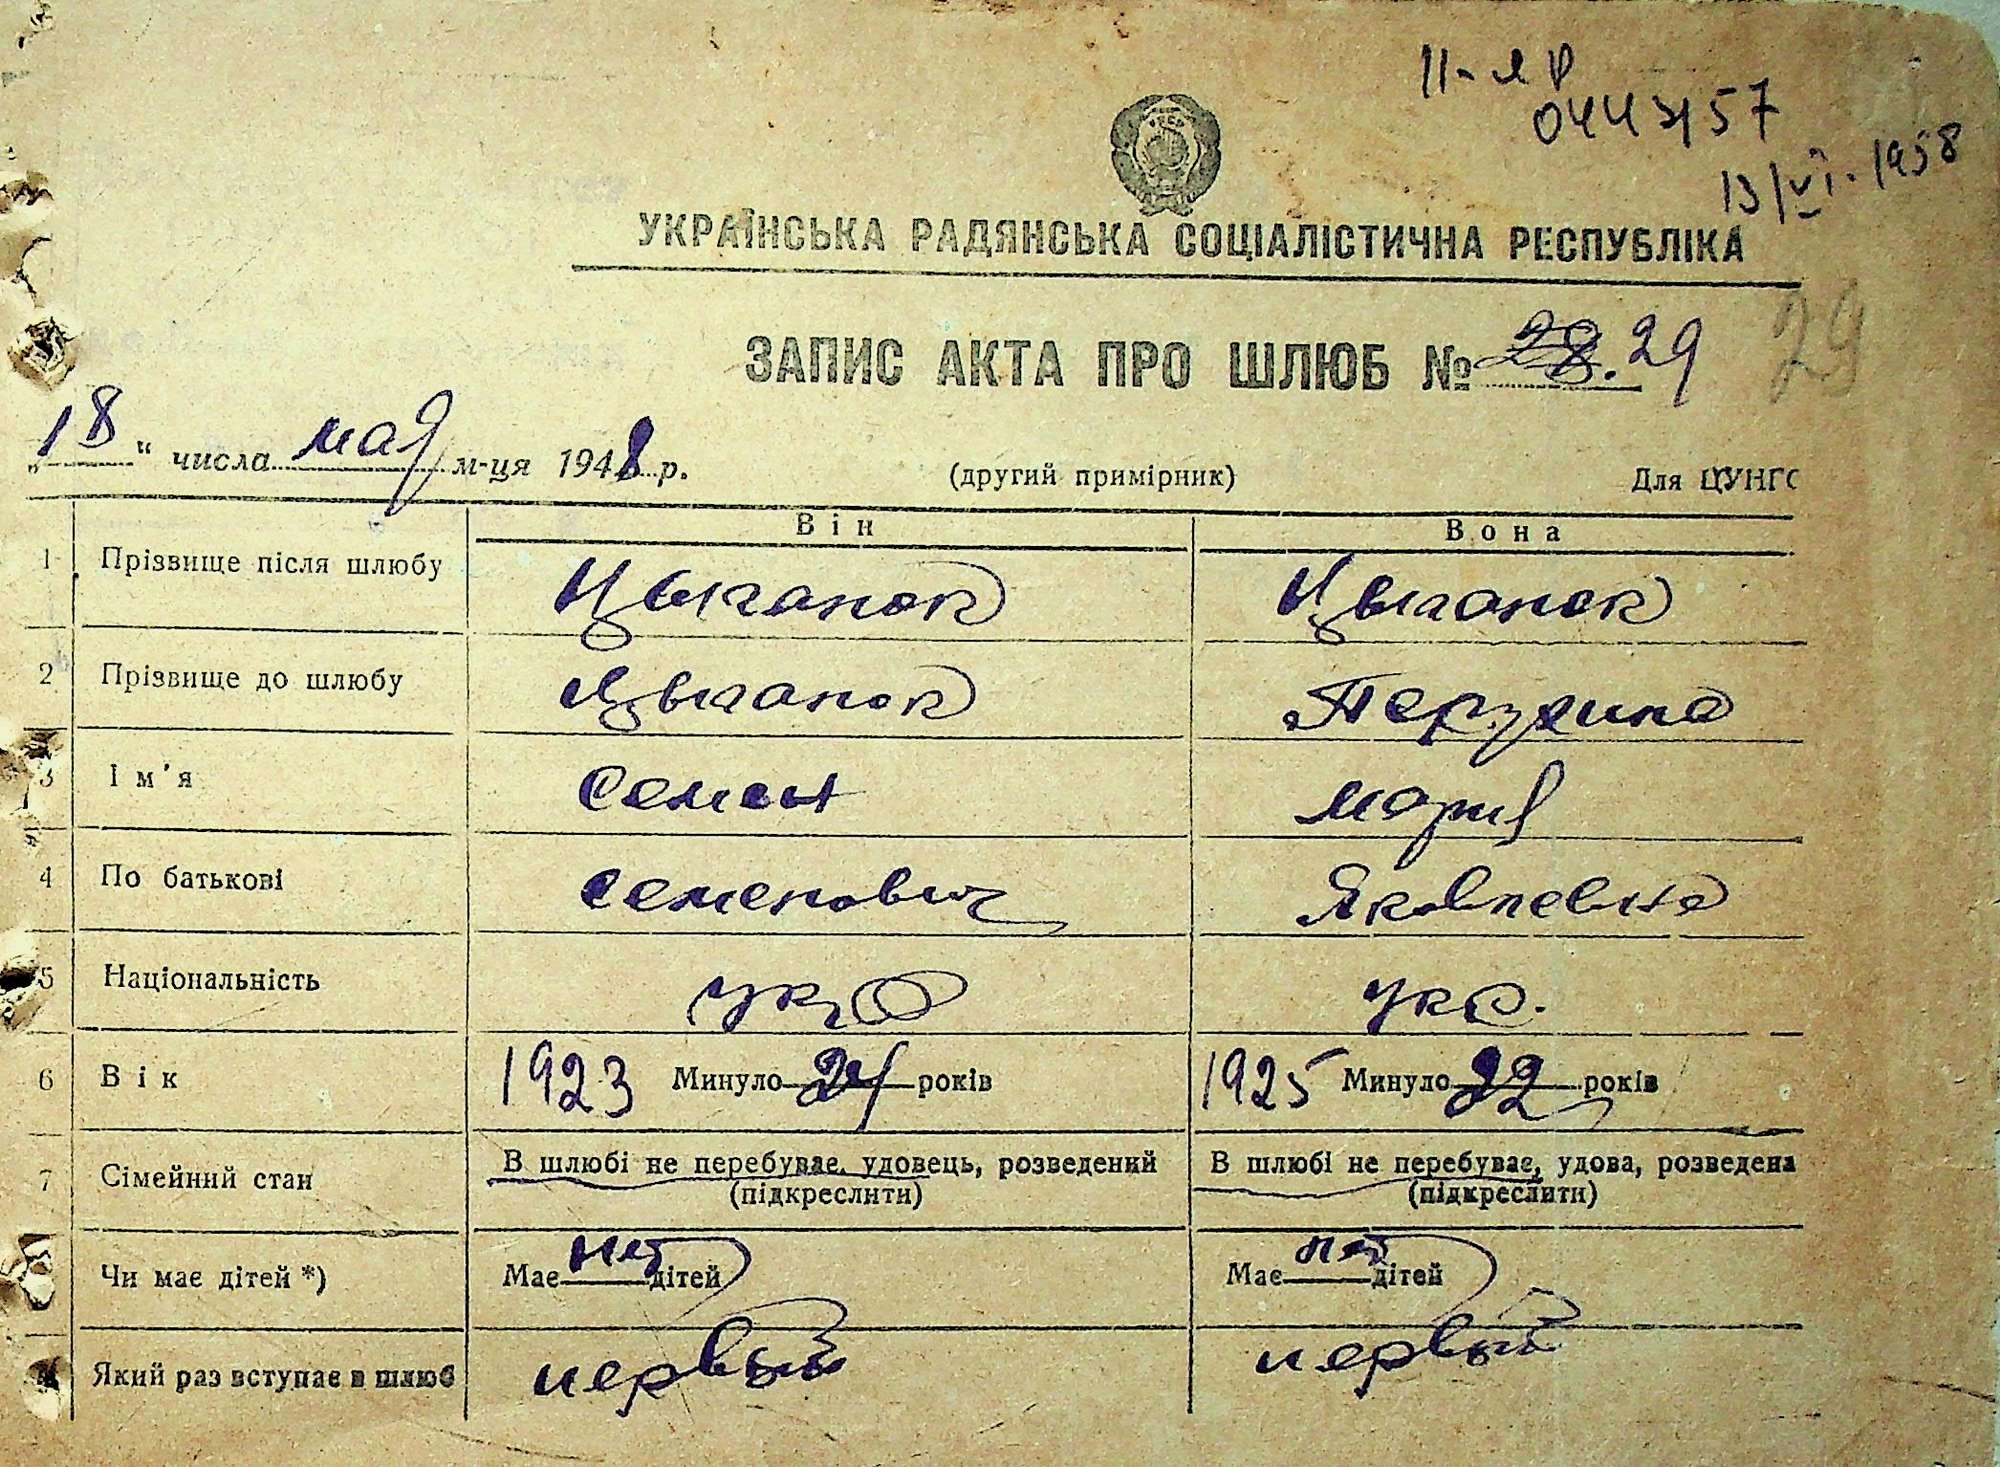 II-ЯР
044457
13/VI-1958
УКРАЇНСЬКА РАДЯНСЬКА СОЦІАЛІСТИЧНА РЕСПУБЛІКА
ЗАПИС АКТА ПРО ШЛЮБ № 28. 29
29
„18" числа мая м-ця 1948 р. (другий примірник) Для ЦУНГО
Він Вона
1 Прізвище після шлюбу Цыганок Цыганок
2 Прізвище до шлюбу Цыганок
3 Ім'я Семен Мария
4 По батькові Семенович Яковлевна
5 Національність укр укр.
6 Вік 1923 Минуло 24 років 1925 Минуло 22 років
7 Сімейний стан В шлюбі не перебуває, удовець, розведений В шлюбі не перебуває, удова, розведена
(підкреслити) (підкреслити)
Чи має дітей *) Має нет дітей Має нет дітей
Який раз вступає в шлюб первый первый